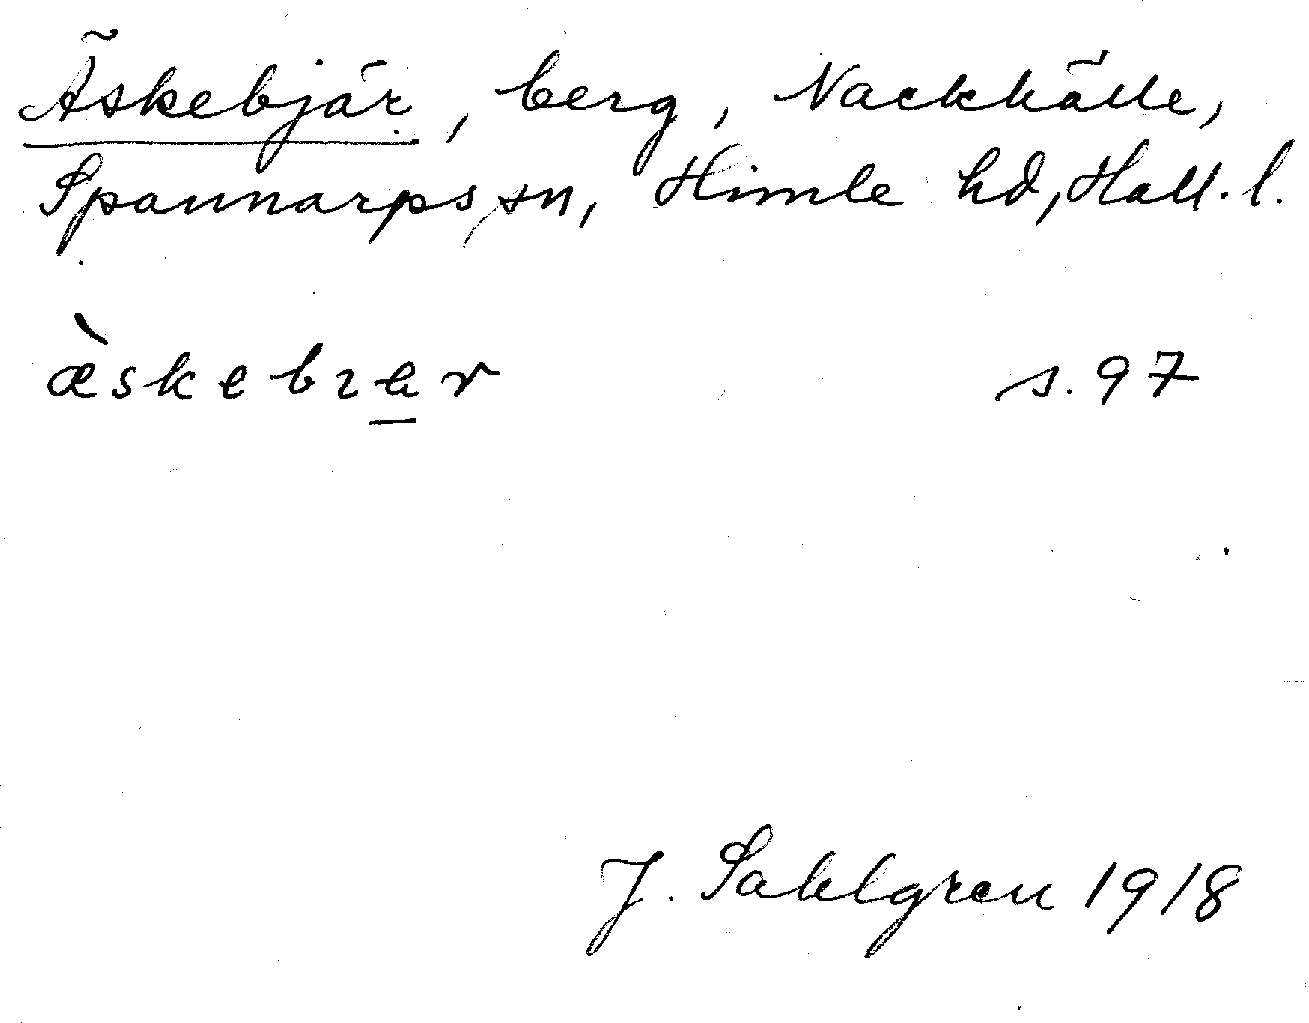 Äskebjär, berg, Nackhälle,
Spannarps sn, Himle hd, Hall. l.
æ̀skebɿa̲r s. 97
J. Sahlgren 1918